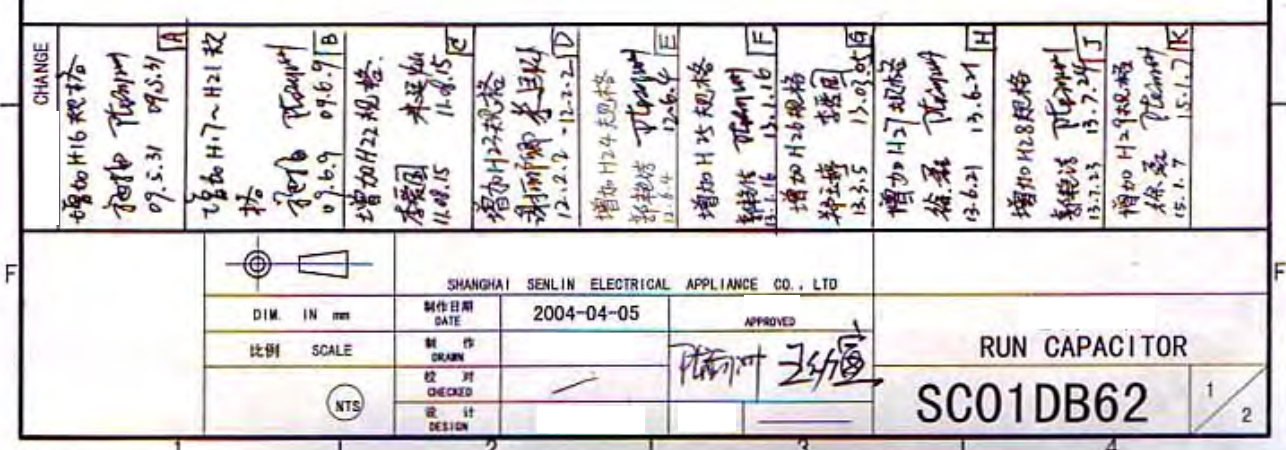 CHANGE
A
增加H16规格
09.5.31
09.5.31
B
增加H17~H21规
格
09.6.9
09.6.9
C
增加H22规格.
李爱国
11.08.15
11.08.15
D
增加H23规格
12.2.2
12.2.2
E
增加H24规格
12.6.4
12.6.4
F
增加H25规格
13.1.16
13.1.16
G
增加H26规格
13.3.5
13.03.05
H
增加H27规格
徐磊
13.6.21
13.6.21
J
增加H28规格
13.7.23
13.7.24
K
增加H29规格
徐磊
15.1.7
15.1.7
F
F
SHANGHAI SENLIN ELECTRICAL APPLIANCE CO., LTD
DIM. IN mm
制作日期
DATE
2004-04-05
APPROVED
比例 SCALE
制 作
DRAWN
校 对
CHECKED
NTS
设 计
DESIGN
RUN CAPACITOR
SC01DB62
1/2
1
2
3
4